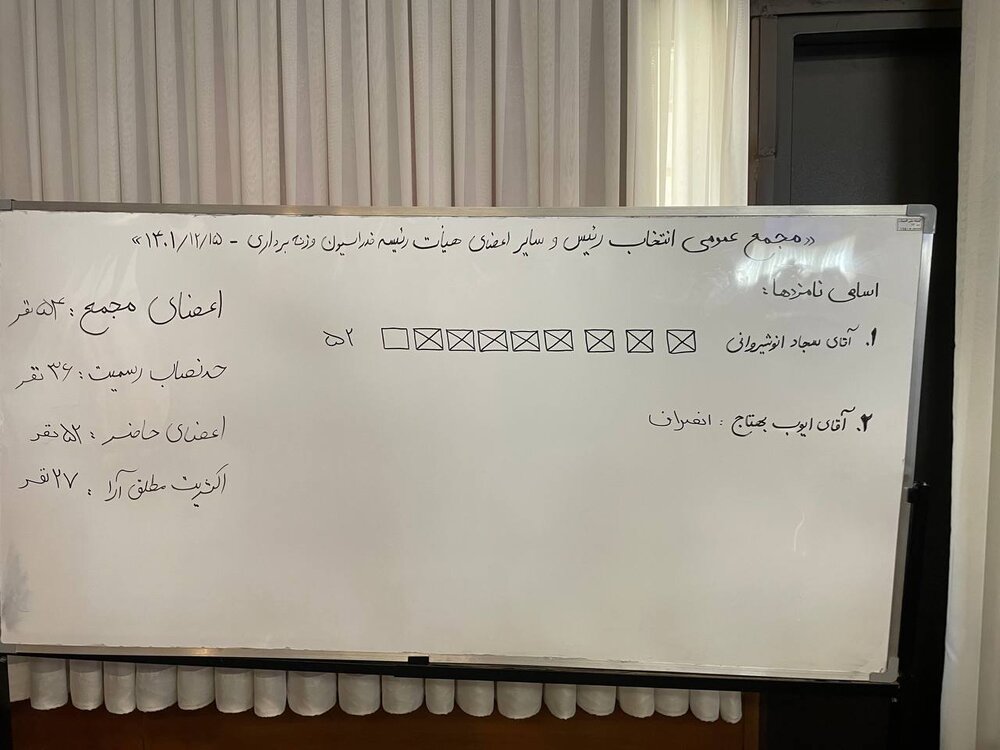 «مجمع عمومی انتخاب رئیس و سایر اعضای هیأت رئیسه فدراسیون وزنه برداری - ۱۴۰۱/۱۲/۱۵»
اسامی نامزدها:
۱. آقای سجاد انوشیروانی ۵۲
۲. آقای ایوب بهتاج : انصراف
اعضای مجمع : ۵۴ نفر
حدنصاب رسمیت : ۳۶ نفر
اعضای حاضر : ۵۲ نفر
اکثریت مطلق آرا : ۲۷ نفر